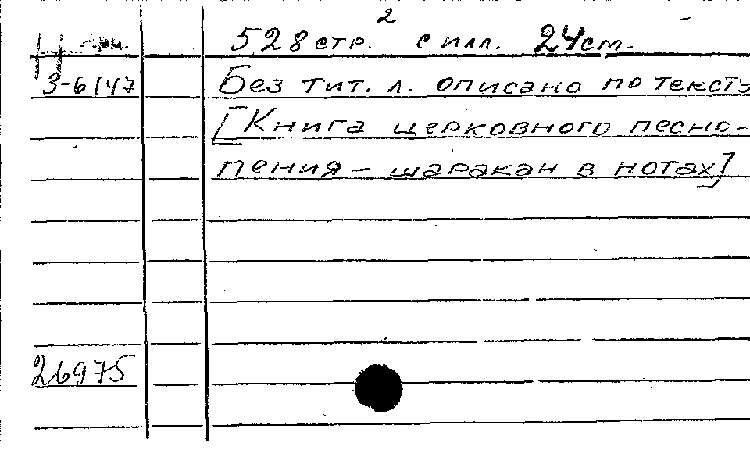 2
528 стр. с илл. 24 см.
3-6/47 Без тит. л. описано по тексту
[Книга церковного песно-
пения - шаракан в нотах]
26975